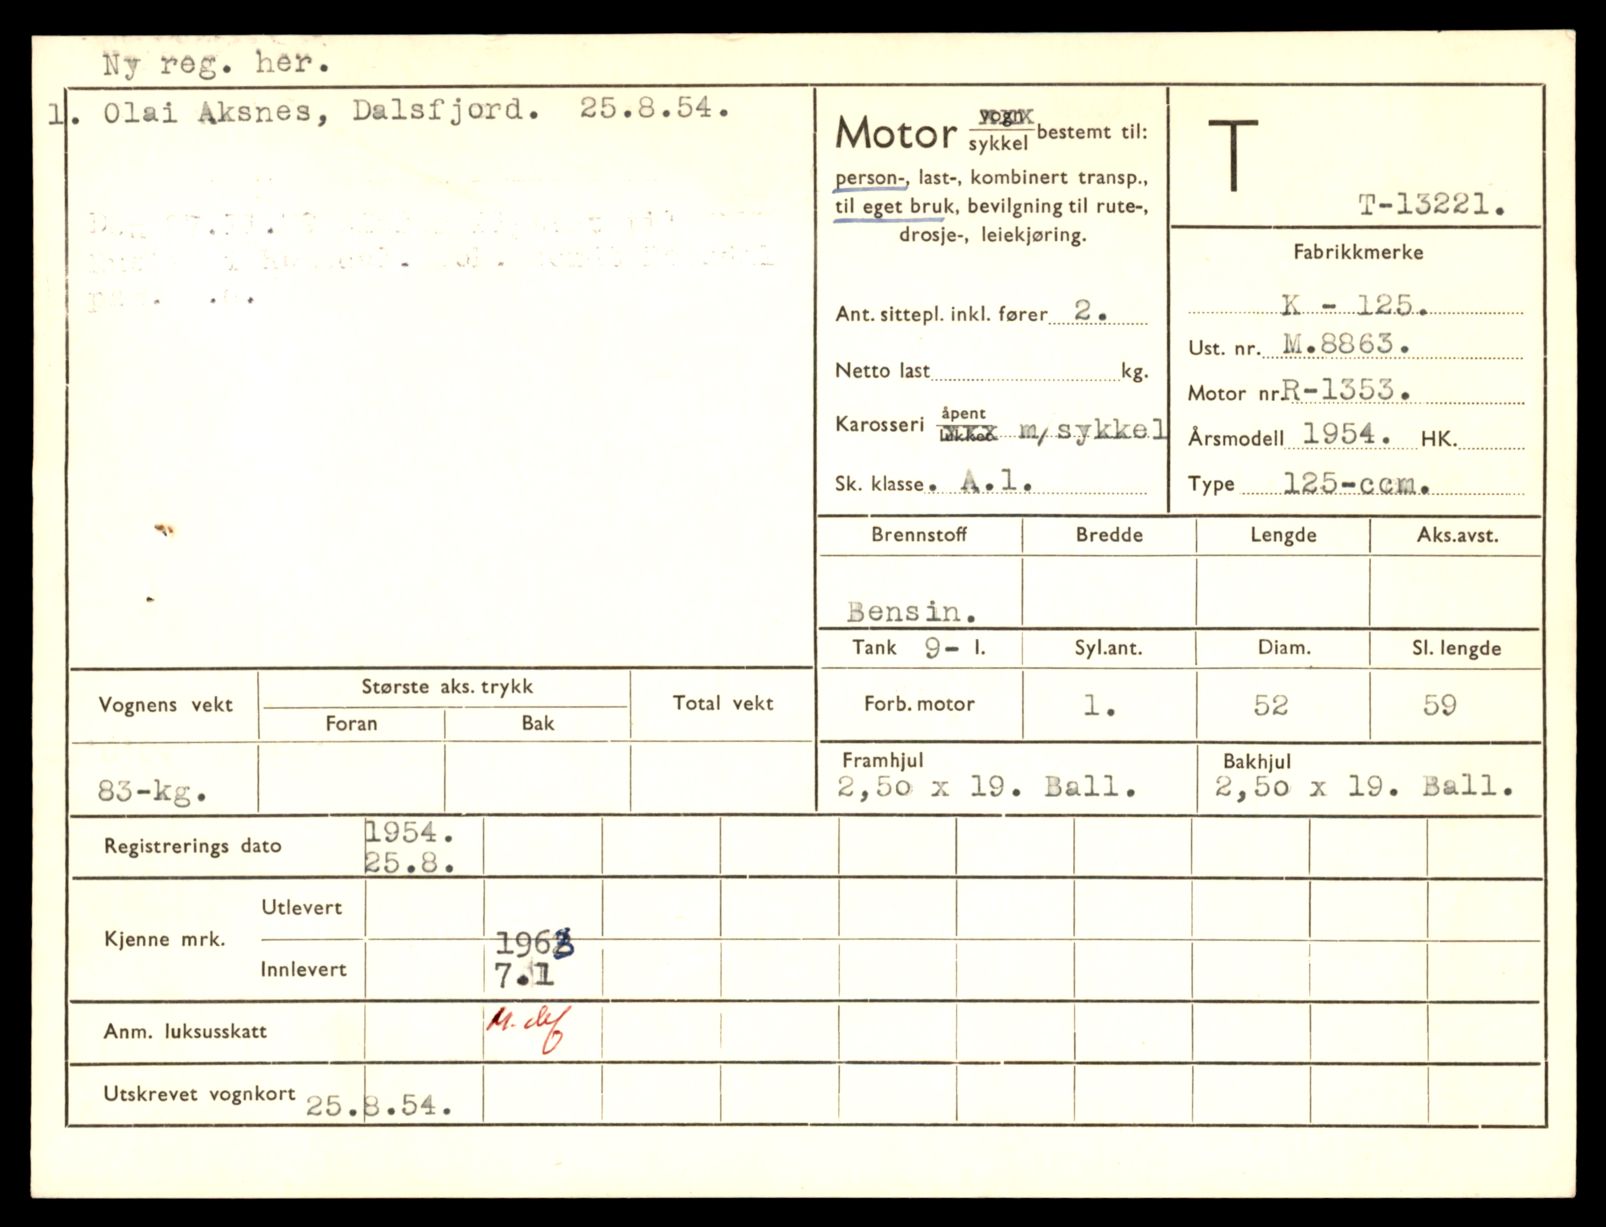 Ny reg. her.
1. Olai Aksnes, Dalsfjord. 25.8.54.
Motor vogn sykkel bestemt til:
person-, last-, kombinert transp.,
til eget bruk, bevilgning til rute-,
drosje-, leiekjøring.
Ant. sittepl. inkl. fører 2.
Netto last kg.
Karosseri åpent lukket m/sykkel
Sk. klasse. A.1.
T
T-13221.
Fabrikkmerke
K - 125.
Ust. nr. M.8863.
Motor nr. R-1353.
Årsmodell 1954. HK.
Type 125-ccm.
Brennstoff Bredde Lengde Aks.avst.
Bensin.
Tank 9- l. Syl.ant. Diam. Sl. lengde
Forb. motor 1. 52 59
Framhjul Bakhjul
2,50 x 19. Ball. 2,50 x 19. Ball.
Vognens vekt Største aks. trykk Total vekt
Foran Bak
83-kg.
Registrerings dato 1954.
25.8.
Kjenne mrk. Utlevert
1963
Innlevert 7.1
Anm. luksusskatt M. def
Utskrevet vognkort 25.8.54.